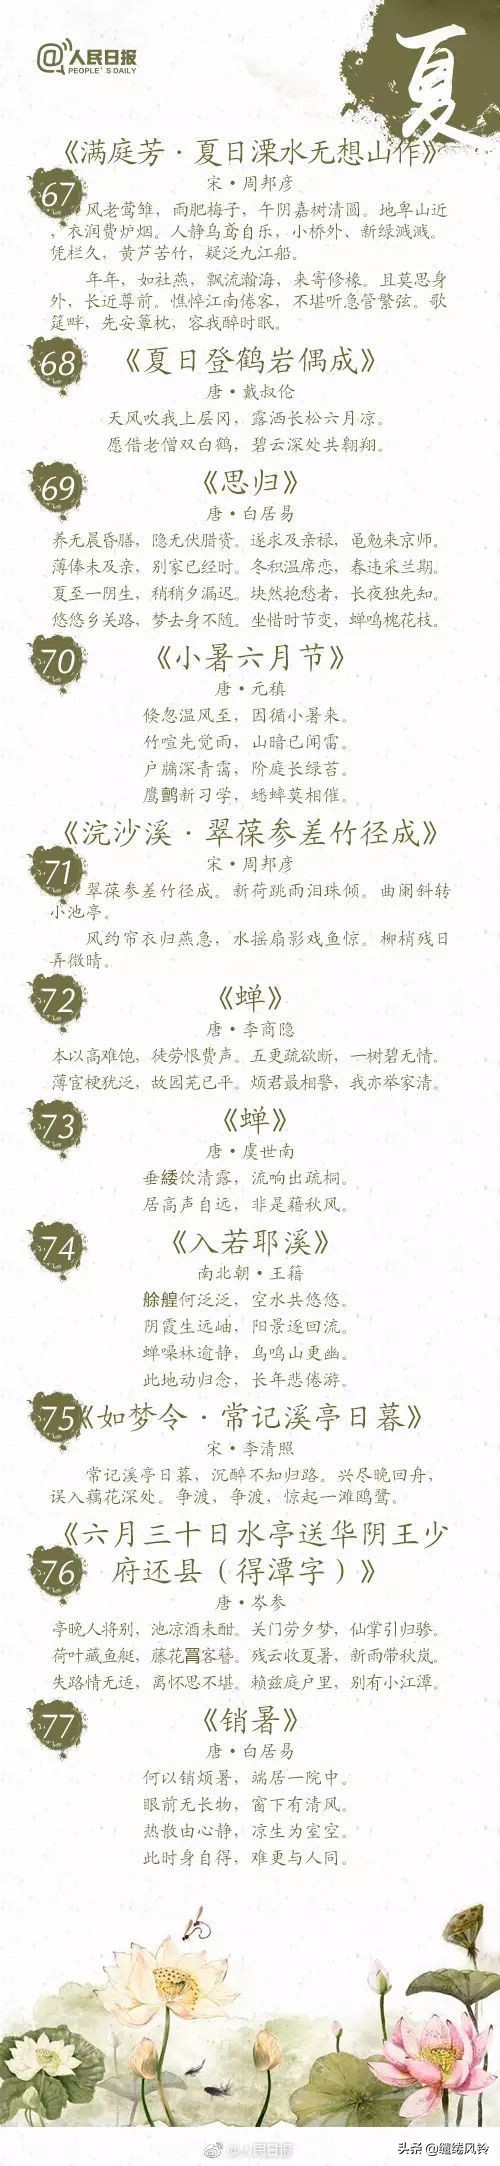 @人民日报
PEOPLE'S DAILY
夏
《满庭芳·夏日溧水无想山作》
67
宋·周邦彦
风老莺雏，雨肥梅子，午阴嘉树清圆。地卑山近
，衣润费炉烟。人静乌鸢自乐，小桥外、新绿溅溅。
凭栏久，黄芦苦竹，疑泛九江船。
年年，如社燕，飘流瀚海，来寄修椽。且莫思身
外，长近尊前。憔悴江南倦客，不堪听急管繁弦。歌
筵畔，先安簟枕，容我醉时眠。
68
《夏日登鹤岩偶成》
唐·戴叔伦
天风吹我上层冈，露洒长松六月凉。
愿借老僧双白鹤，碧云深处共翱翔。
69
《思归》
唐·白居易
养无晨昏膳，隐无伏腊资。遂求及亲禄，黾勉来京师。
薄俸未及亲，别家已经时。冬积温席恋，春违采兰期。
夏至一阴生，稍稍夕漏迟。块然抱愁者，长夜独先知。
悠悠乡关路，梦去身不随。坐惜时节变，蝉鸣槐花枝。
70
《小暑六月节》
唐·元稹
倏忽温风至，因循小暑来。
竹喧先觉雨，山暗已闻雷。
户牖深青霭，阶庭长绿苔。
鹰鹯新习学，蟋蟀莫相催。
《浣沙溪·翠葆参差竹径成》
71
宋·周邦彦
翠葆参差竹径成。新荷跳雨泪珠倾。曲阑斜转
小池亭。
风约帘衣归燕急，水摇扇影戏鱼惊。柳梢残日
弄微晴。
72
《蝉》
唐·李商隐
本以高难饱，徒劳恨费声。五更疏欲断，一树碧无情。
薄宦梗犹泛，故园芜已平。烦君最相警，我亦举家清。
73
《蝉》
唐·虞世南
垂緌饮清露，流响出疏桐。
居高声自远，非是藉秋风。
74
《入若耶溪》
南北朝·王籍
艅艎何泛泛，空水共悠悠。
阴霞生远岫，阳景逐回流。
蝉噪林逾静，鸟鸣山更幽。
此地动归念，长年悲倦游。
75
《如梦令·常记溪亭日暮》
宋·李清照
常记溪亭日暮，沉醉不知归路。兴尽晚回舟，
误入藕花深处。争渡，争渡，惊起一滩鸥鹭。
《六月三十日水亭送华阴王少
76
府还县（得潭字）》
唐·岑参
亭晚人将别，池凉酒未酣。关门劳夕梦，仙掌引归骖。
荷叶藏鱼艇，藤花罥客簪。残云收夏暑，新雨带秋岚。
失路情无适，离怀思不堪。赖兹庭户里，别有小江潭。
77
《销暑》
唐·白居易
何以销烦暑，端居一院中。
眼前无长物，窗下有清风。
热散由心静，凉生为室空。
此时身自得，难更与人同。
@人民日报
头条@缠绕风铃